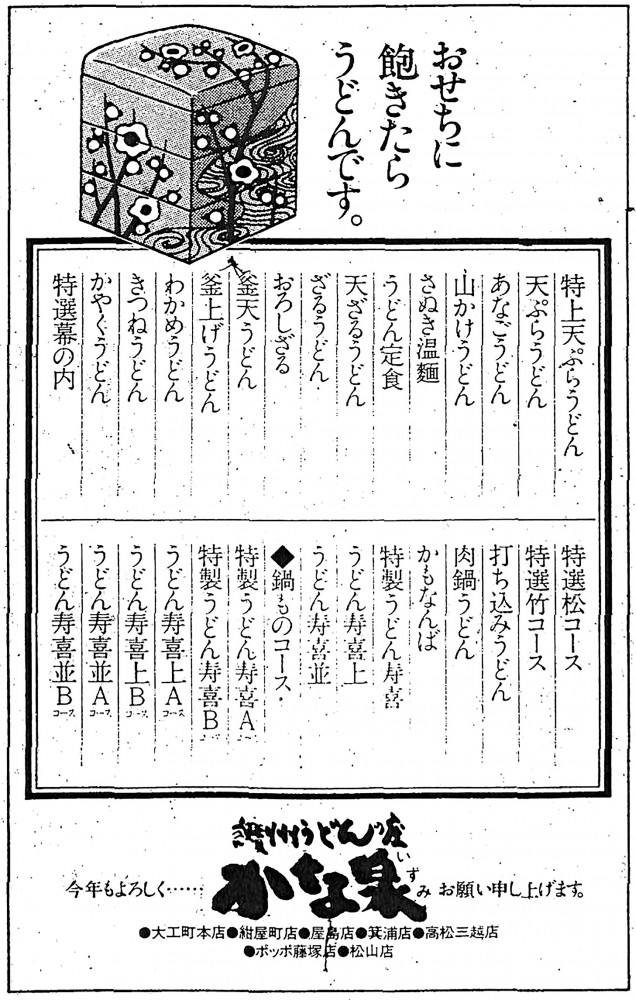 おせちに
飽きたら
うどんです。
特上天ぷらうどん
天ぷらうどん
あなごうどん
山かけうどん
さぬき温麺
うどん定食
天ざるうどん
ざるうどん
おろしざる
釜天うどん
釜上げうどん
わかめうどん
きつねうどん
かやくうどん
特選幕の内
特選松コース
特選竹コース
打ち込みうどん
肉鍋うどん
かもなんば
特製うどん寿喜
うどん寿喜上
うどん寿喜並
◆鍋ものコース
特製うどん寿喜A コース
特製うどん寿喜B コース
うどん寿喜上A コース
うどん寿喜上B コース
うどん寿喜並A コース
うどん寿喜並B コース
讃州うどんの庄
今年もよろしく…… かな泉 いずみ お願い申し上げます。
●大工町本店●紺屋町店●屋島店●箕浦店●高松三越店
●ポッポ藤塚店●松山店